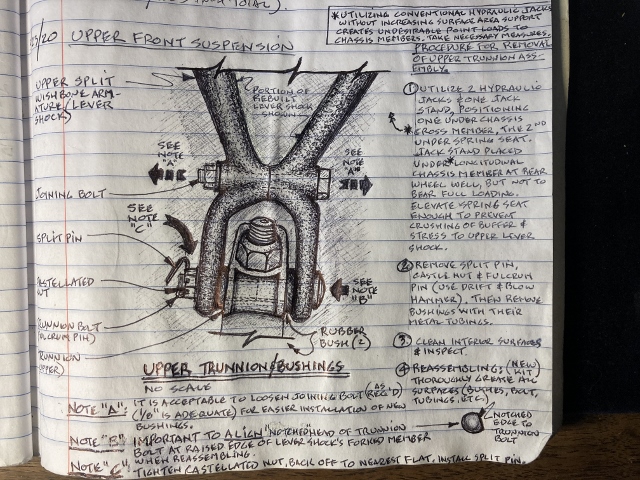 /20 UPPER FRONT SUSPENSION
*UTILIZING CONVENTIONAL HYDRAULIC JACKS
WITHOUT INCREASING SURFACE AREA SUPPORT
CREATES UNDESIRABLE POINT LOADS TO
CHASSIS MEMBERS. TAKE NECESSARY MEASURES.
PROCEDURE FOR REMOVAL
OF UPPER TRUNNION ASS-
EMBLY.
UPPER SPLIT
WISHBONE ARM-
ATURE (LEVER
SHOCK)
PORTION OF
REBUILT
LEVER SHOCK
SHOWN
SEE
NOTE
"A"
SEE
NOTE
"A"
JOINING BOLT
SEE
NOTE
"C"
SPLIT PIN
CASTELLATED
NUT
TRUNNION BOLT
(FULCRUM PIN)
TRUNNION
(UPPER)
SEE
NOTE
"B"
RUBBER
BUSH (2)
① UTILIZE 2 HYDRAULIC
JACKS & ONE JACK
STAND, POSITIONING
ONE UNDER CHASSIS
*CROSS MEMBER, THE 2ND
UNDER SPRING SEAT.
JACK STAND PLACED
UNDER *LONGITUDINAL
CHASSIS MEMBER AT REAR
WHEEL WELL, BUT NOT TO
BEAR FULL LOADING.
ELEVATE SPRING SEAT
ENOUGH TO PREVENT
CRUSHING OF BUFFER &
STRESS TO UPPER LEVER
SHOCK.
② REMOVE SPLIT PIN,
CASTLE NUT & FULCRUM
PIN (USE DRIFT & BLOW
HAMMER). THEN REMOVE
BUSHINGS WITH THEIR
METAL TUBINGS.
③ CLEAN INTERIOR SURFACES
& INSPECT.
④ REASSEMBLING: (NEW KIT)
THOROUGHLY GREASE ALL
SURFACES (BUSHES, BOLT,
TUBINGS, ETC.)
NOTCHED
EDGE TO
TRUNNION
BOLT
UPPER TRUNNION/BUSHINGS
NO SCALE
NOTE "A": IT IS ACCEPTABLE TO LOOSEN JOINING BOLT (AS REQ'D)
(1/8" IS ADEQUATE) FOR EASIER INSTALLATION OF NEW
BUSHINGS.
NOTE "B" IMPORTANT TO ALIGN "NOTCHED" HEAD OF TRUNNION
BOLT AT RAISED EDGE OF LEVER SHOCK'S FORKED MEMBER
WHEN REASSEMBLING.
NOTE "C" TIGHTEN CASTELLATED NUT, BACK OFF TO NEAREST FLAT. INSTALL SPLIT PIN.